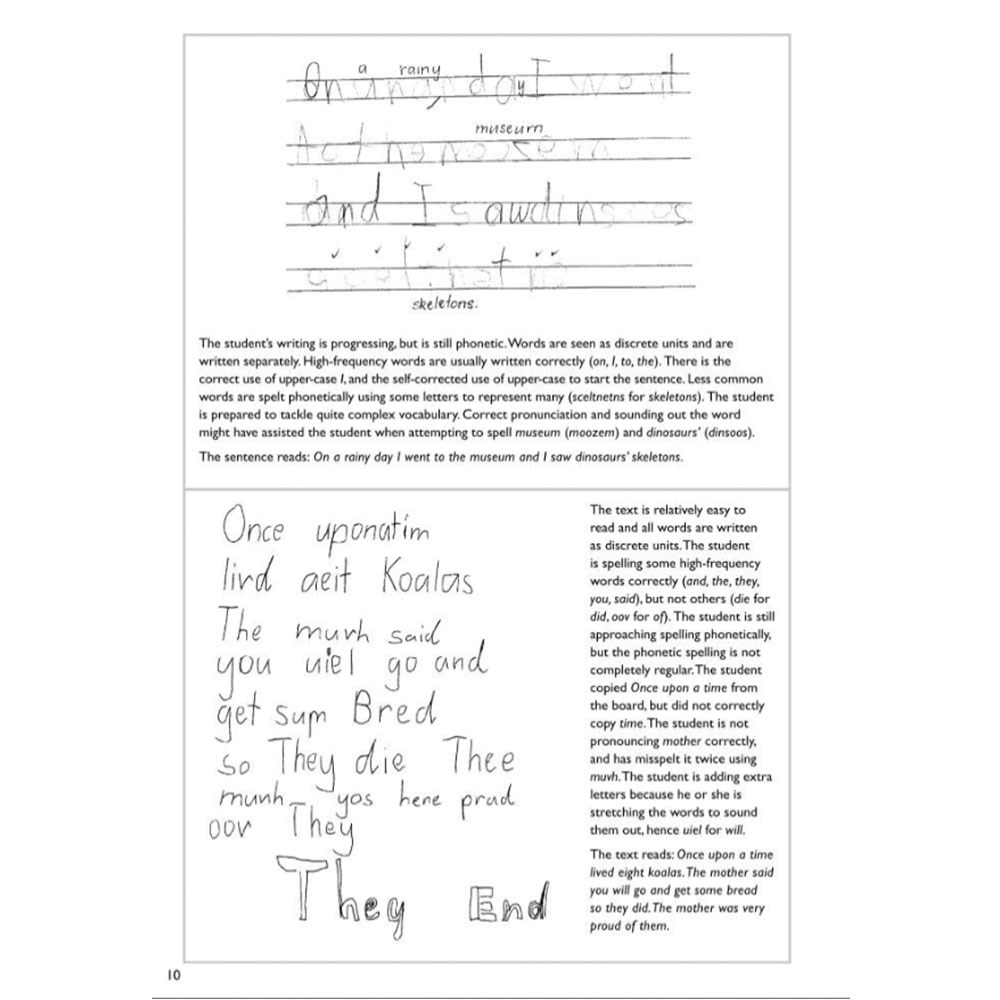 a rainy
On day I went
museum
and I saw dinscos
skeletons.
The student's writing is progressing, but is still phonetic. Words are seen as discrete units and are
written separately. High-frequency words are usually written correctly (on, I, to, the). There is the
correct use of upper-case I, and the self-corrected use of upper-case to start the sentence. Less common
words are spelt phonetically using some letters to represent many (sceltnetns for skeletons). The student
is prepared to tackle quite complex vocabulary. Correct pronunciation and sounding out the word
might have assisted the student when attempting to spell museum (moozem) and dinosaurs' (dinsoos).
The sentence reads: On a rainy day I went to the museum and I saw dinosaurs' skeletons.
Once uponatim
livd aeit Koalas
The muvh said
you uiel go and
get sum Bred
so They die Thee
muvh yos here prud
oov They
They End
The text is relatively easy to
read and all words are written
as discrete units. The student
is spelling some high-frequency
words correctly (and, the, they,
you, said), but not others (die for
did, oov for of). The student is still
approaching spelling phonetically,
but the phonetic spelling is not
completely regular. The student
copied Once upon a time from
the board, but did not correctly
copy time. The student is not
pronouncing mother correctly,
and has misspelt it twice using
muvh. The student is adding extra
letters because he or she is
stretching the words to sound
them out, hence uiel for will.
The text reads: Once upon a time
lived eight koalas. The mother said
you will go and get some bread
so they did. The mother was very
proud of them.
10